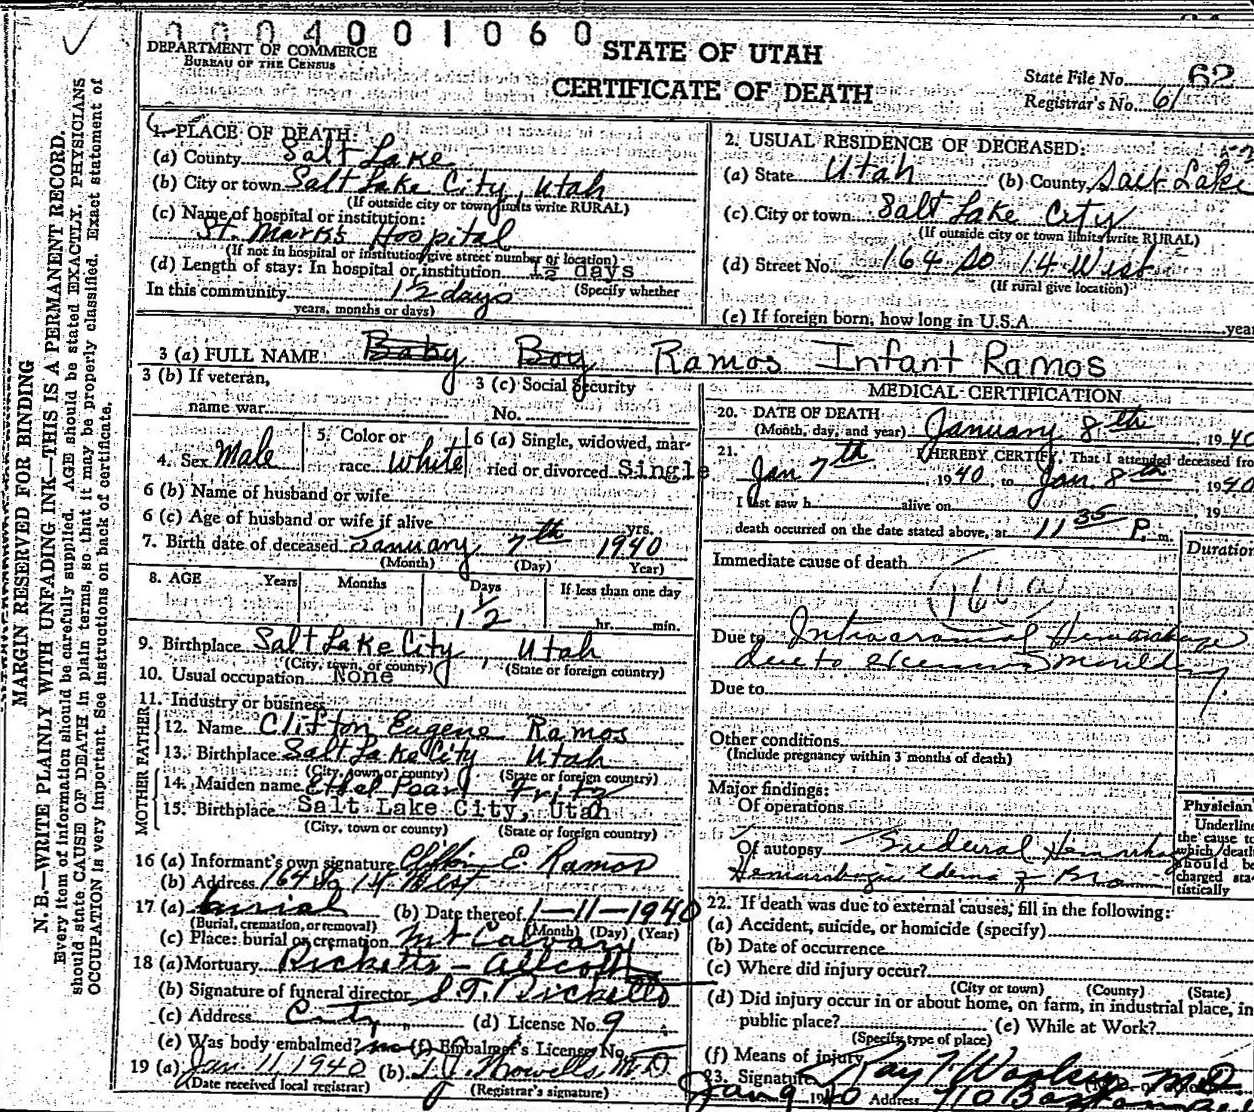 0004001060
DEPARTMENT OF COMMERCE
BUREAU OF THE CENSUS
STATE OF UTAH
CERTIFICATE OF DEATH
State File No. 62
Registrar's No. 61
MARGIN RESERVED FOR BINDING
N. B.—WRITE PLAINLY WITH UNFADING INK—THIS IS A PERMANENT RECORD.
Every item of information should be carefully supplied. AGE should be stated EXACTLY. PHYSICIANS
should state CAUSE OF DEATH in plain terms, so that it may be properly classified. Exact statement of
OCCUPATION is very important. See instructions on back of certificate.
1. PLACE OF DEATH:
(a) County Salt Lake
(b) City or town Salt Lake City, Utah
(If outside city or town limits write RURAL)
(c) Name of hospital or institution:
St. Marks Hospital
(If not in hospital or institution give street number or location)
(d) Length of stay: In hospital or institution 1½ days
(Specify whether
In this community 1½ days
years, months or days)
2. USUAL RESIDENCE OF DECEASED:
(a) State Utah (b) County Salt Lake
(c) City or town Salt Lake City
(If outside city or town limits write RURAL)
(d) Street No. 164 So 14 West
(If rural give location)
(e) If foreign born, how long in U.S.A. year
3 (a) FULL NAME Baby Boy Ramos Infant Ramos
3 (b) If veteran,
name war
3 (c) Social Security
No.
4. Sex Male
5. Color or
race White
6 (a) Single, widowed, mar-
ried or divorced Single
6 (b) Name of husband or wife
6 (c) Age of husband or wife if alive yrs.
7. Birth date of deceased January 7th 1940
(Month) (Day) Year)
8. AGE Years Months Days If less than one day
1½ hr. min.
9. Birthplace Salt Lake City, Utah
(City, town, or county) (State or foreign country)
10. Usual occupation None
11. Industry or business
FATHER
12. Name Clifton Eugene Ramos
13. Birthplace Salt Lake City Utah
(City, town or county) (State or foreign country)
MOTHER
14. Maiden name Ethel Pearl Fritz
15. Birthplace Salt Lake City, Utah
(City, town or county) (State or foreign country)
16 (a) Informant's own signature Clifton E. Ramos
(b) Address 164 So 14 West
17 (a) burial (b) Date thereof 1-11-1940
(Burial, cremation, or removal) (Month) (Day) (Year)
(c) Place: burial or cremation Mt Calvary
18 (a) Mortuary Ricketts-Allcott
(b) Signature of funeral director Ricketts
(c) Address City (d) License No. 9
(e) Was body embalmed? no (f) Embalmer's License No.
19 (a) Jan. 11, 1940 (b) M.D.
(Date received local registrar) (Registrar's signature)
MEDICAL CERTIFICATION
20. DATE OF DEATH
(Month, day, and year) January 8th 1940
21. I HEREBY CERTIFY, That I attended deceased fro
Jan 7th 1940 to Jan. 8th 1940
I last saw h alive on 19
death occurred on the date stated above, at 11 35 P. m.
Duration
Immediate cause of death
(160a)
Due to Intracranial Hemorrhage
due to
Due to
Other conditions
(Include pregnancy within 3 months of death)
Major findings:
Of operations
Of autopsy
edema of
Physician
Underline
the cause to
which death
should be
charged sta-
tistically
22. If death was due to external causes, fill in the following:
(a) Accident, suicide, or homicide (specify)
(b) Date of occurrence
(c) Where did injury occur?
(City or town) (County) (State)
(d) Did injury occur in or about home, on farm, in industrial place, in
public place? (e) While at Work?
(Specify type of place)
(f) Means of injury
23. Signature Ray T Woolsey M.D.
Jan 9 1940 Address 710